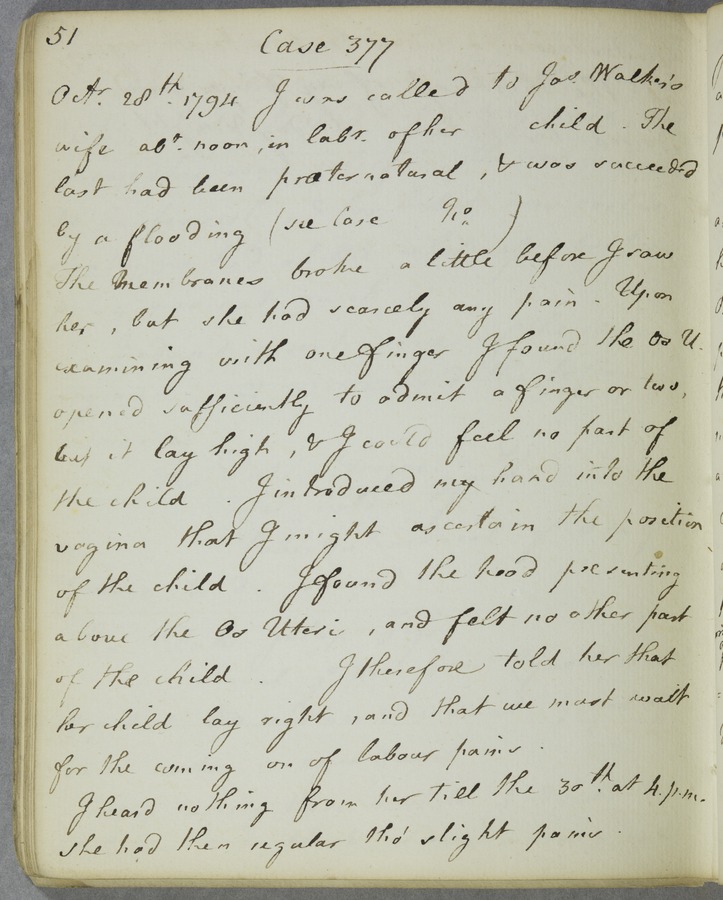 51
Case 377
Octr. 28th. 1794 I was called to Jas. Walker's
wife abt. noon, in labr. of her child. The
last had been præternatural, & was succeeded
by a flooding (see Case No. )
The Membranes broke a little before I saw
her, but she had scarcely any pain. Upon
examining with one finger I found the Os U.
opened sufficiently to admit a finger or two,
but it lay high, & I could feel no part of
the child. I introduced my hand into the
vagina that I might ascertain the position
of the child. I found the head presenting
above the Os Uteri, and felt no other part
of the child. I therefore told her that
her child lay right, and that we must wait
for the coming on of labour pains.
I heard nothing from her till the 30th. at 4. p.m.
she had then regular tho' slight pains.